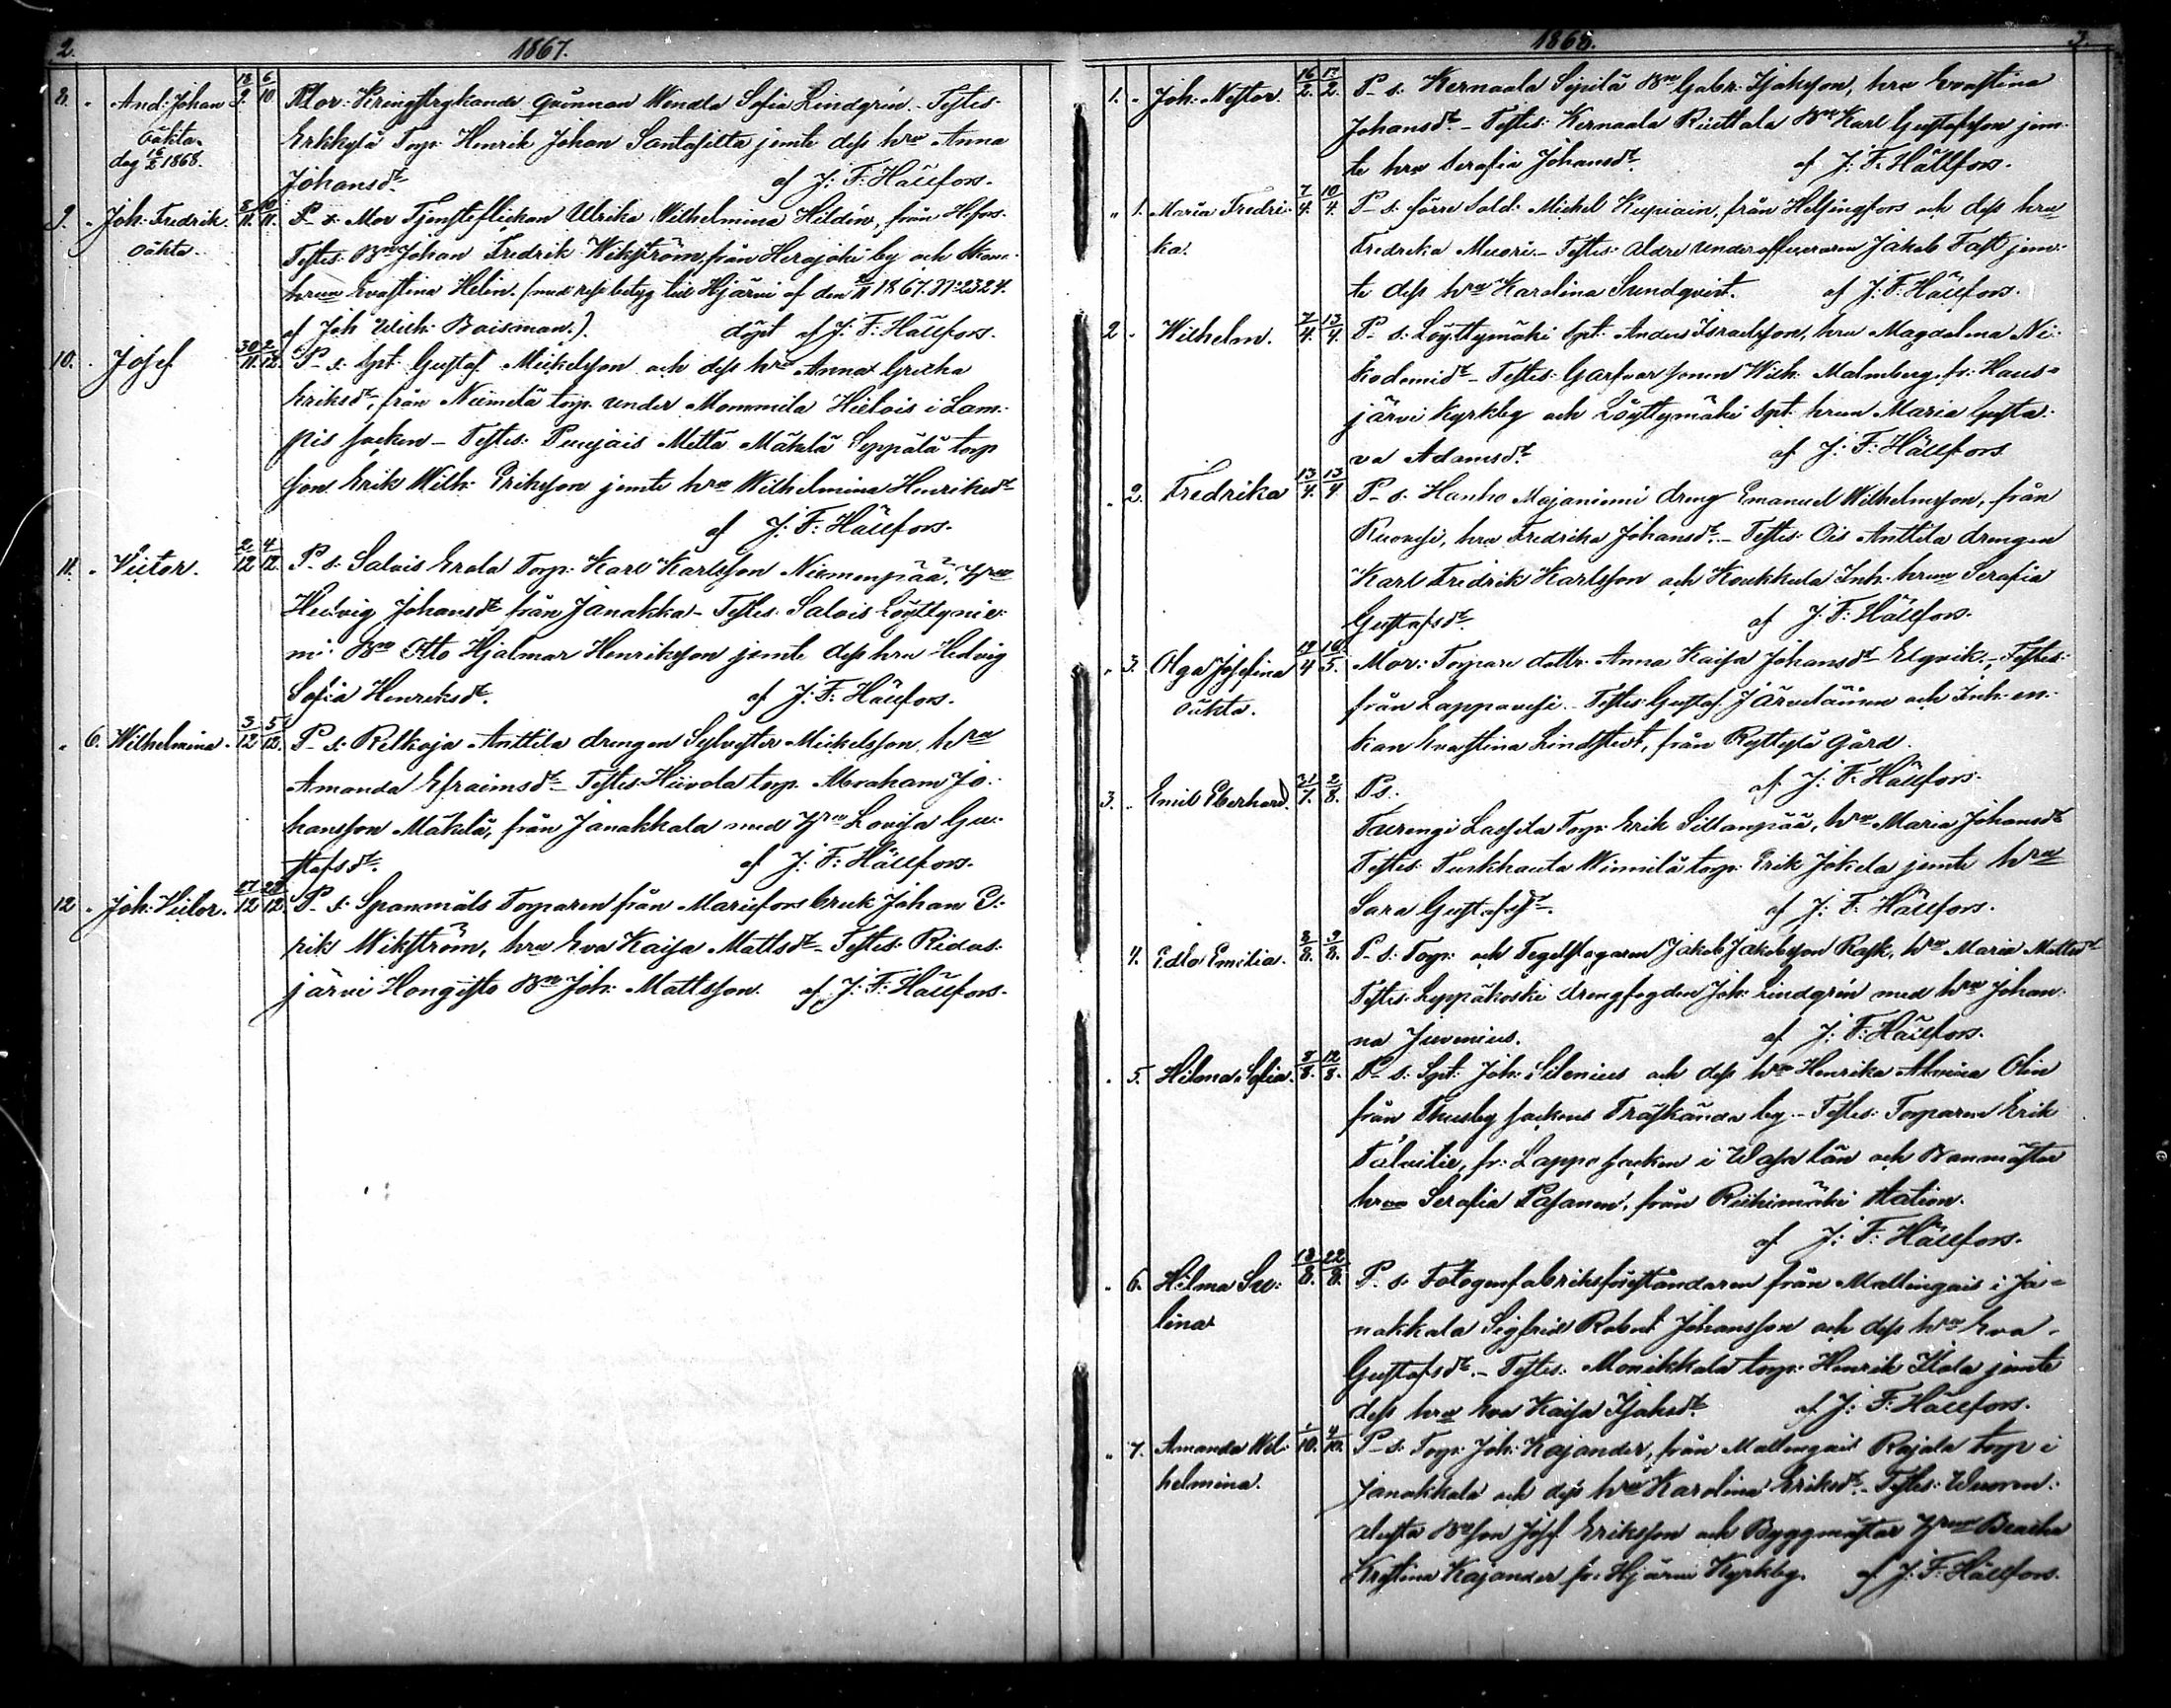 2.
1867.
8. " And: Johan 18/9. 6/10 Mor: Kringstrykande qvinnan Wendla Sofia Lindgrén. - Testes:
oäkta. Erkkylä Torp. Henrik Johan Santasilta jemte dess hru Anna
dog 16/2 1868. Johansdr. af J: F: Hällfors.
9. " Joh: Fredrik. 8/11. 10/11. P-s: Mor Tjensteflickan Ulrika Wilhelmina Hildén, från Hfors.
oäkta. Testes: Bn Johan Fredrik Wikström, från Herajoki by och
hrun Evastina Helin. (med betyg till Hjärvi af den 1867. No 2324.
af Joh Wilh: Boisman.). döpt af J: F: Hällfors.
10. " Josef 30/11. 2/12. P-s: Spt: Gustaf Mickelsson och dess hru Anna Greta
Eriksdr, från Niemelä torp under Mommila Hietois i Lam:
pis socken - Testes: Puujais Mettä Mäkelä Seppälä torp
son Erik Wilh: Eriksson jemte hru Wilhelmina Henriksdr
af J: F: Hällfors.
11. " Victor. 2/12 4/12. P-s: Salois Erola Torp: Karl Karlsson Niemenpää, Hru
Hedvig Johansdr från Janakka - Testes: Salois Löyttynie:
mi Bn Otto Hjalmar Henriksson jemte dess hru Hedvig
Sofia Henriksdr. af J: F: Hällfors.
" 6. Wilhelmina. 3/12 5/12. P-s: Relkoja Anttila drengen Sylvester Mickelsson, hru
Amanda Efraimsdr - Testes: Hiivola torp. Abraham Jo:
hansson Mäkelä, från Janakkala med Hru Lovisa Gu:
stafsdr. af J: F: Hällfors.
12 " Joh: Victor. 27/12 28/12. P-s: Spanmåls Torparen från Mariefors bruk Johan E:
rik Wikström, hru Eva Kaisa Mattsdr - Testes: Ridas:
järvi Hongisto Bn Joh: Mattsson. af J: F: Hällfors.
1868.
3.
1. " Joh: Nestor. 16/2. 17/2. P-s: Kernaala Sipilä Bn Gabr: Isaksson, hru Evastina
Johansdr. - Testes: Kernaala Riettala Bn Karl Gustafsson jem:
te hru Serafia Johansdr. af J: F: Hällfors.
" 1. Maria Fredri: 7/4. 10/4. P-s: förre Sold: Michel Kupiain, från Helsingfors och dess hru
ka. Fredrika Muori. - Testes: äldre underofficeraren Jakob Fast jem:
te dess hru Karolina Sundqvist. af J: F: Hällfors.
2 " Wilhelm. 7/4. 13/4. P-s: Löyttymäki Spt: Anders Israelsson, hru Magdalena Ni:
kodemidr - Testes: Garfvar sonen Wilh: Malmberg, fr: Haus=
järvi Kyrkby och Löyttymäki Spt: hrun Maria Gusta:
va Adamsdr. af J: F: Hällfors.
" 2. Fredrika 13/4. 13/4. P-s: Hanho Majaniemi dreng Emanuel Wilhelmsson, från
Ruovesi, hru Fredrika Johansdr. - Testes: Ois Anttila drengen
Karl Fredrik Karlsson och Koukkula Inh: hrun Serafia
Gustafsdr. af J: F: Hällfors.
" 3. Olga Josefina 19/4 10/5. Mor: Torpare dottr: Anna Kaisa Johansdr Elgvik. - Testes:
oäkta. från Lappavesi. - Testes: Gustaf Järveläinen och Inh: en:
kan Evastina Lindstedt, från Ryttylä Gård.
af J: F: Hällfors.
3. " Emil Eberhard. 31/7. 2/8. Ps:
Taurengi Lassila Torp: Erik Sillanpää, hru Maria Johansdr
Testes: Turkhauta Winnilä torp: Erik Jokela jemte hru
Sara Gustafsdr. af J: F: Hällfors.
" 4. Edla Emilia. 8/8. 9/8. P-s: Torp: och Tegelslagaren Jakob Jakobsson Rask, hru Maria Mattsdr
Testes: Leppäkoski drengfogden Joh: Lindgrén med hru Johan:
na Juvenius. af J: F: Hällfors.
" 5. Hilma Sofia. 8/8. 12/8. P-s: Spt: Joh: Silenius och dess hru Henrika Almina Olin
från Thusby sockens Träskända by. - Testes: Torparen Erik
fr: Lappo socken i Wasa län och Banmästar
hrun Serafia Pasanen, från Riihimäki station.
af J: F: Hällfors.
" 6. Hilma Su: 18/8. 22/8. P-s: Fotogenfabriksföreståndaren från Mallingais i Ja=
lina nakkala Sigfrid Robert Johansson och dess hru Eva
Gustafsdr. - Testes: Monikkala torp: Henrik Iilola jemte
dess hru Eva Kaisa Isaksdr. af J: F: Hällfors.
" 7. Amanda Wil: 1/10. 4/10. P-s: Torp: Joh: Kajander, från Mallingais Rajala torp i
helmina. Janakkala och dess hru Karolina Eriksdr. - Testes:
Bnson Josef Eriksson och Byggmästar Hrun Beata
Kristina Kajander fr: Hjärvi Kyrkby. af J: F: Hällfors.